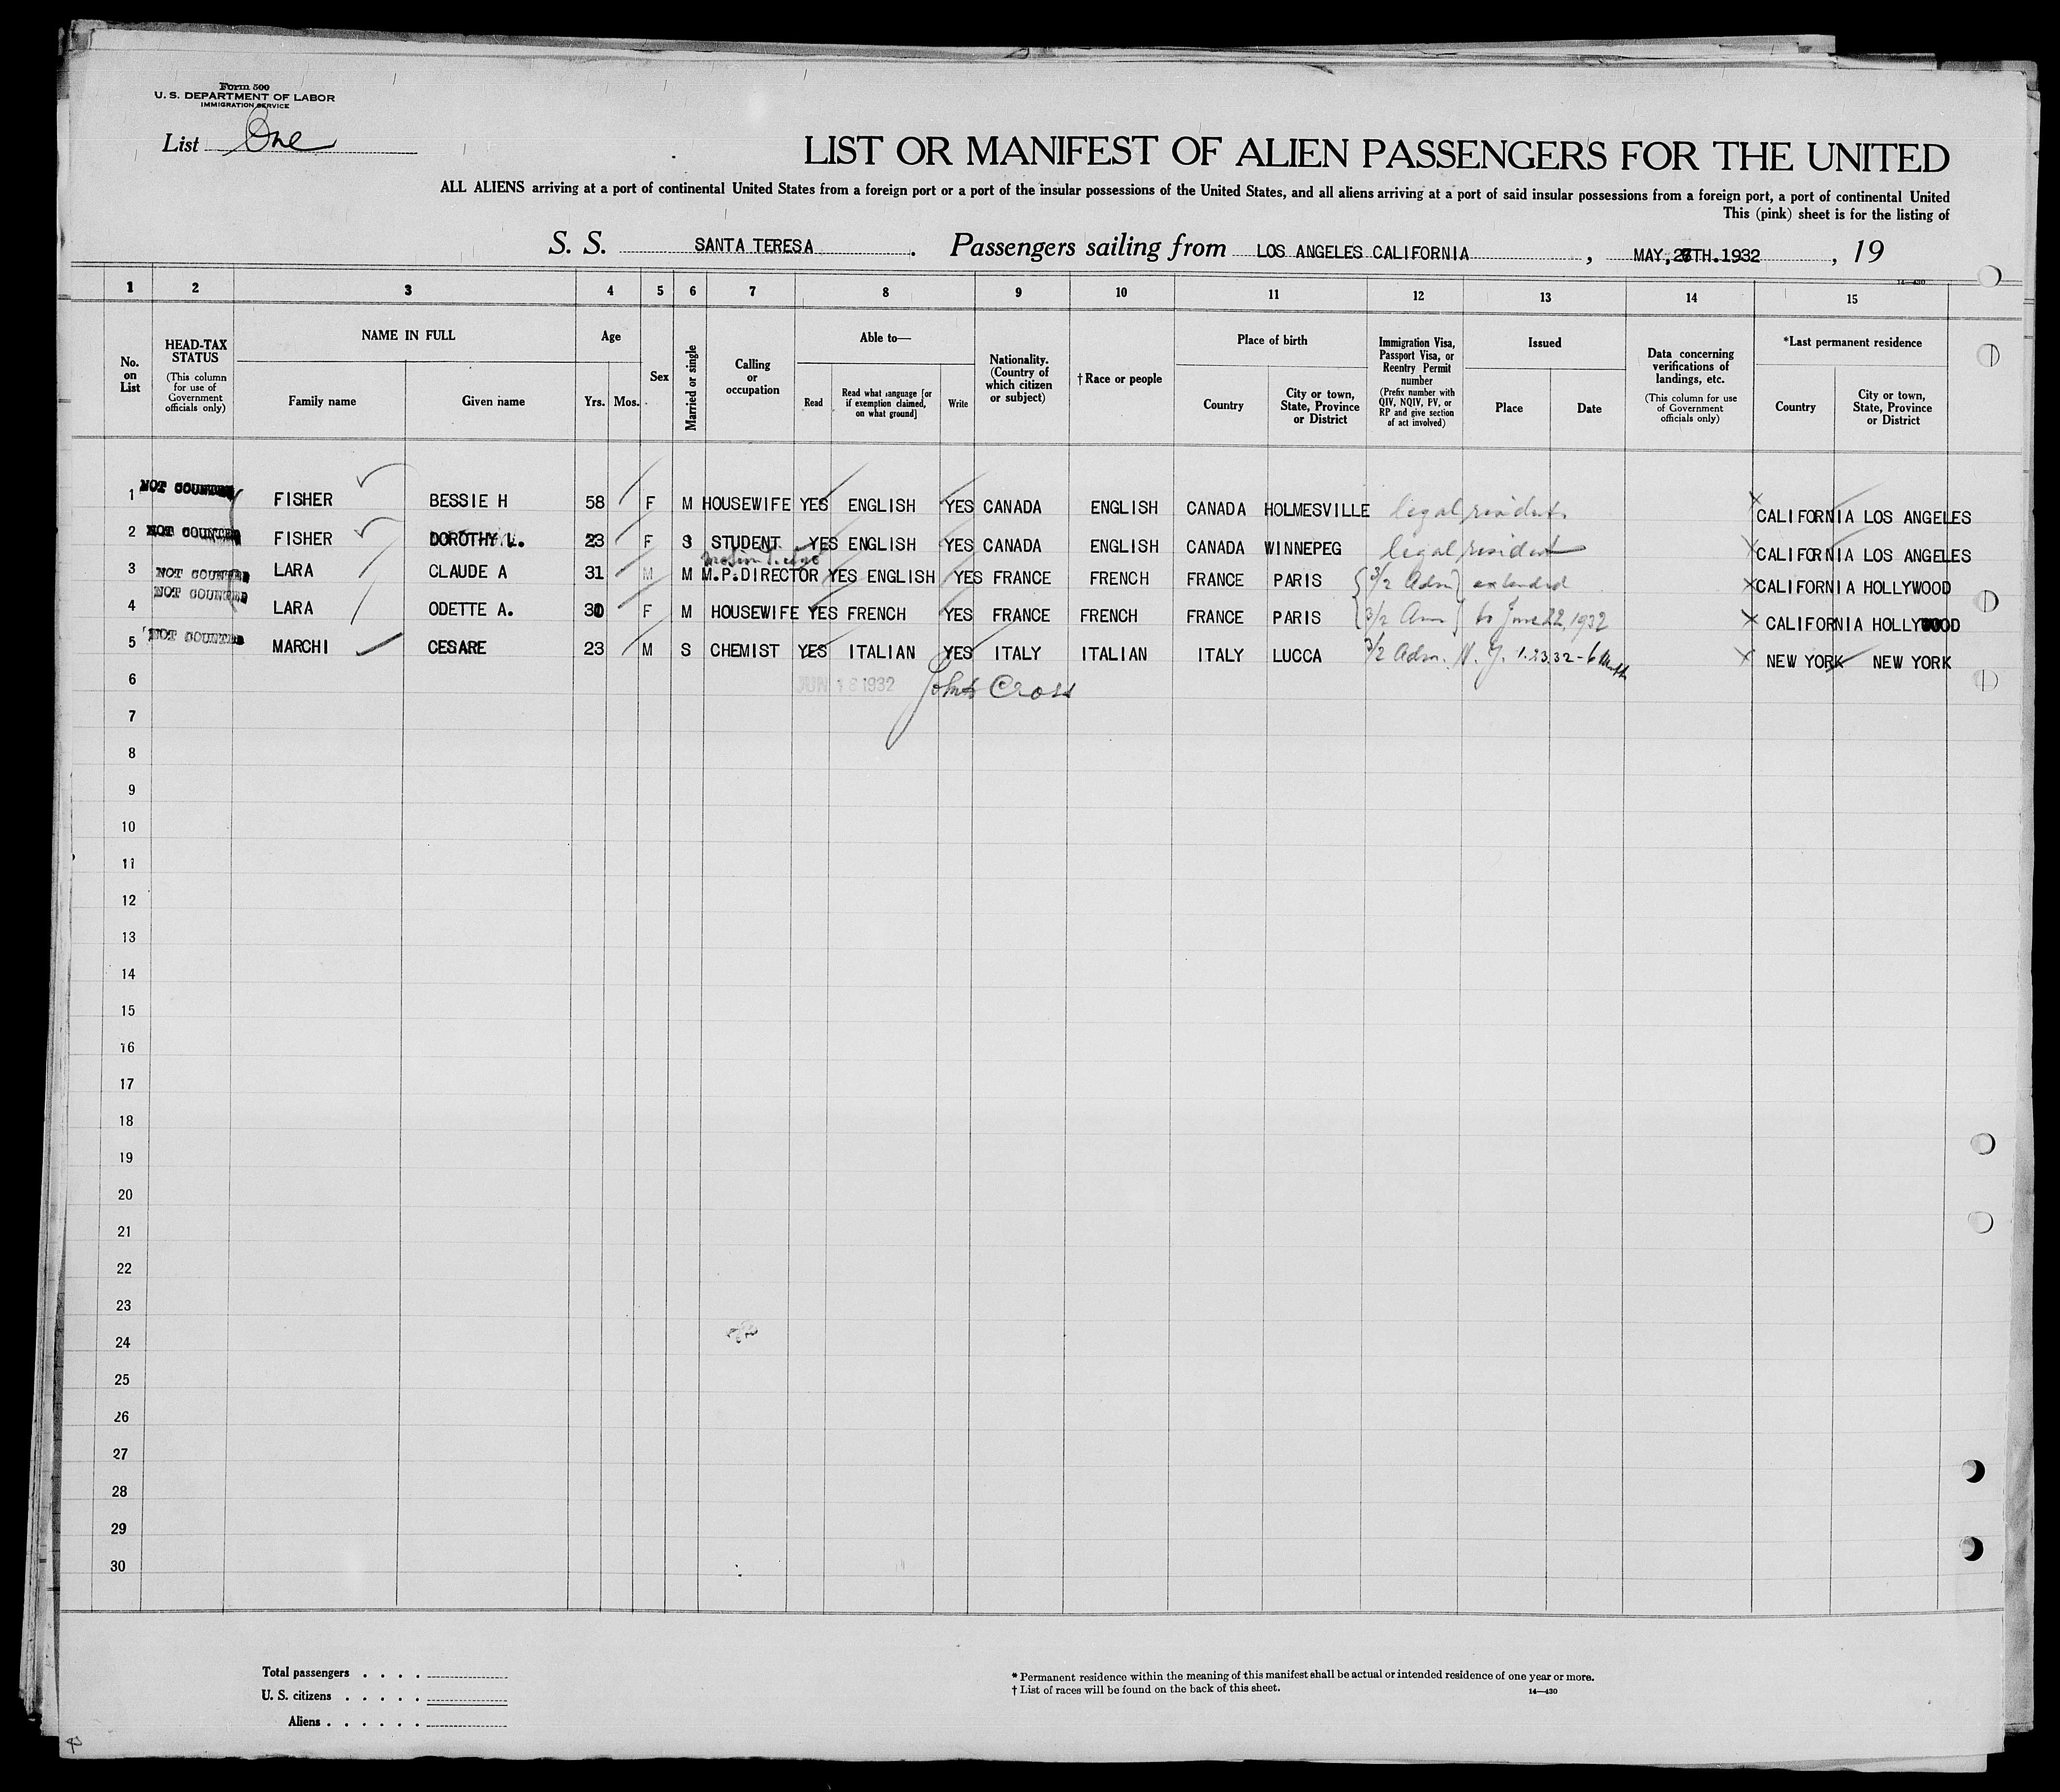 Form 500
U. S. DEPARTMENT OF LABOR
IMMIGRATION SERVICE
List One
LIST OR MANIFEST OF ALIEN PASSENGERS FOR THE UNITED
ALL ALIENS arriving at a port of continental United States from a foreign port or a port of the insular possessions of the United States, and all aliens arriving at a port of said insular possessions from a foreign port, a port of continental United
This (pink) sheet is for the listing of
S. S. SANTA TERESA. Passengers sailing from LOS ANGELES CALIFORNIA, MAY, TH.1932, 19
14—430
1 2 3 4 5 6 7 8 9 10 11 12 13 14 15
No. on List
HEAD-TAX STATUS (This column for use of Government officials only)
NAME IN FULL
Family name Given name
Age
Yrs. Mos.
Sex
Married or single
Calling or occupation
Able to—
Read Read what language [or if exemption claimed, on what ground] Write
Nationality. (Country of which citizen or subject)
†Race or people
Place of birth
Country City or town, State, Province or District
Immigration Visa, Passport Visa, or Reentry Permit number (Prefix number with QIV, NQIV, PV, or RP and give section of act involved)
Issued
Place Date
Data concerning verifications of landings, etc. (This column for use of Government officials only)
*Last permanent residence
Country City or town, State, Province or District
1 NOT COUNTED FISHER BESSIE H 58 F M HOUSEWIFE YES ENGLISH YES CANADA ENGLISH CANADA HOLMESVILLE legal resident CALIFORNIA LOS ANGELES
2 NOT COUNTED FISHER DOROTHY L. 23 F S STUDENT YES ENGLISH YES CANADA ENGLISH CANADA WINNEPEG legal resident CALIFORNIA LOS ANGELES
3 NOT COUNTED LARA CLAUDE A 31 M M M.P.DIRECTOR YES ENGLISH YES FRANCE FRENCH FRANCE PARIS 3/2 Adm extended CALIFORNIA HOLLYWOOD
4 NOT COUNTED LARA ODETTE A. 30 F M HOUSEWIFE YES FRENCH YES FRANCE FRENCH FRANCE PARIS 3/2 Adm to June 22, 1932 CALIFORNIA HOLLYWOOD
5 NOT COUNTED MARCHI CESARE 23 M S CHEMIST YES ITALIAN YES ITALY ITALIAN ITALY LUCCA 3/2 Adm. N. Y. 1.23.32 - 6 NEW YORK NEW YORK
6 JUN 18 1932 Cross
7
8
9
10
11
12
13
14
15
16
17
18
19
20
21
22
23
24
25
26
27
28
29
30
Total passengers . . . .
U. S. citizens . . . . .
Aliens . . . . . .
* Permanent residence within the meaning of this manifest shall be actual or intended residence of one year or more.
† List of races will be found on the back of this sheet.
14—430